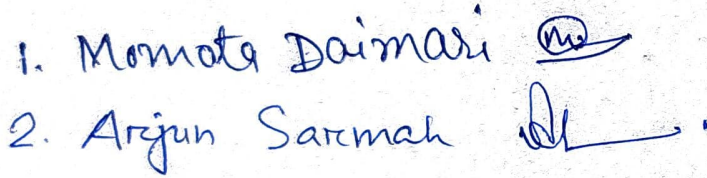 1. Momota Daimari
2. Arjun Sarmah